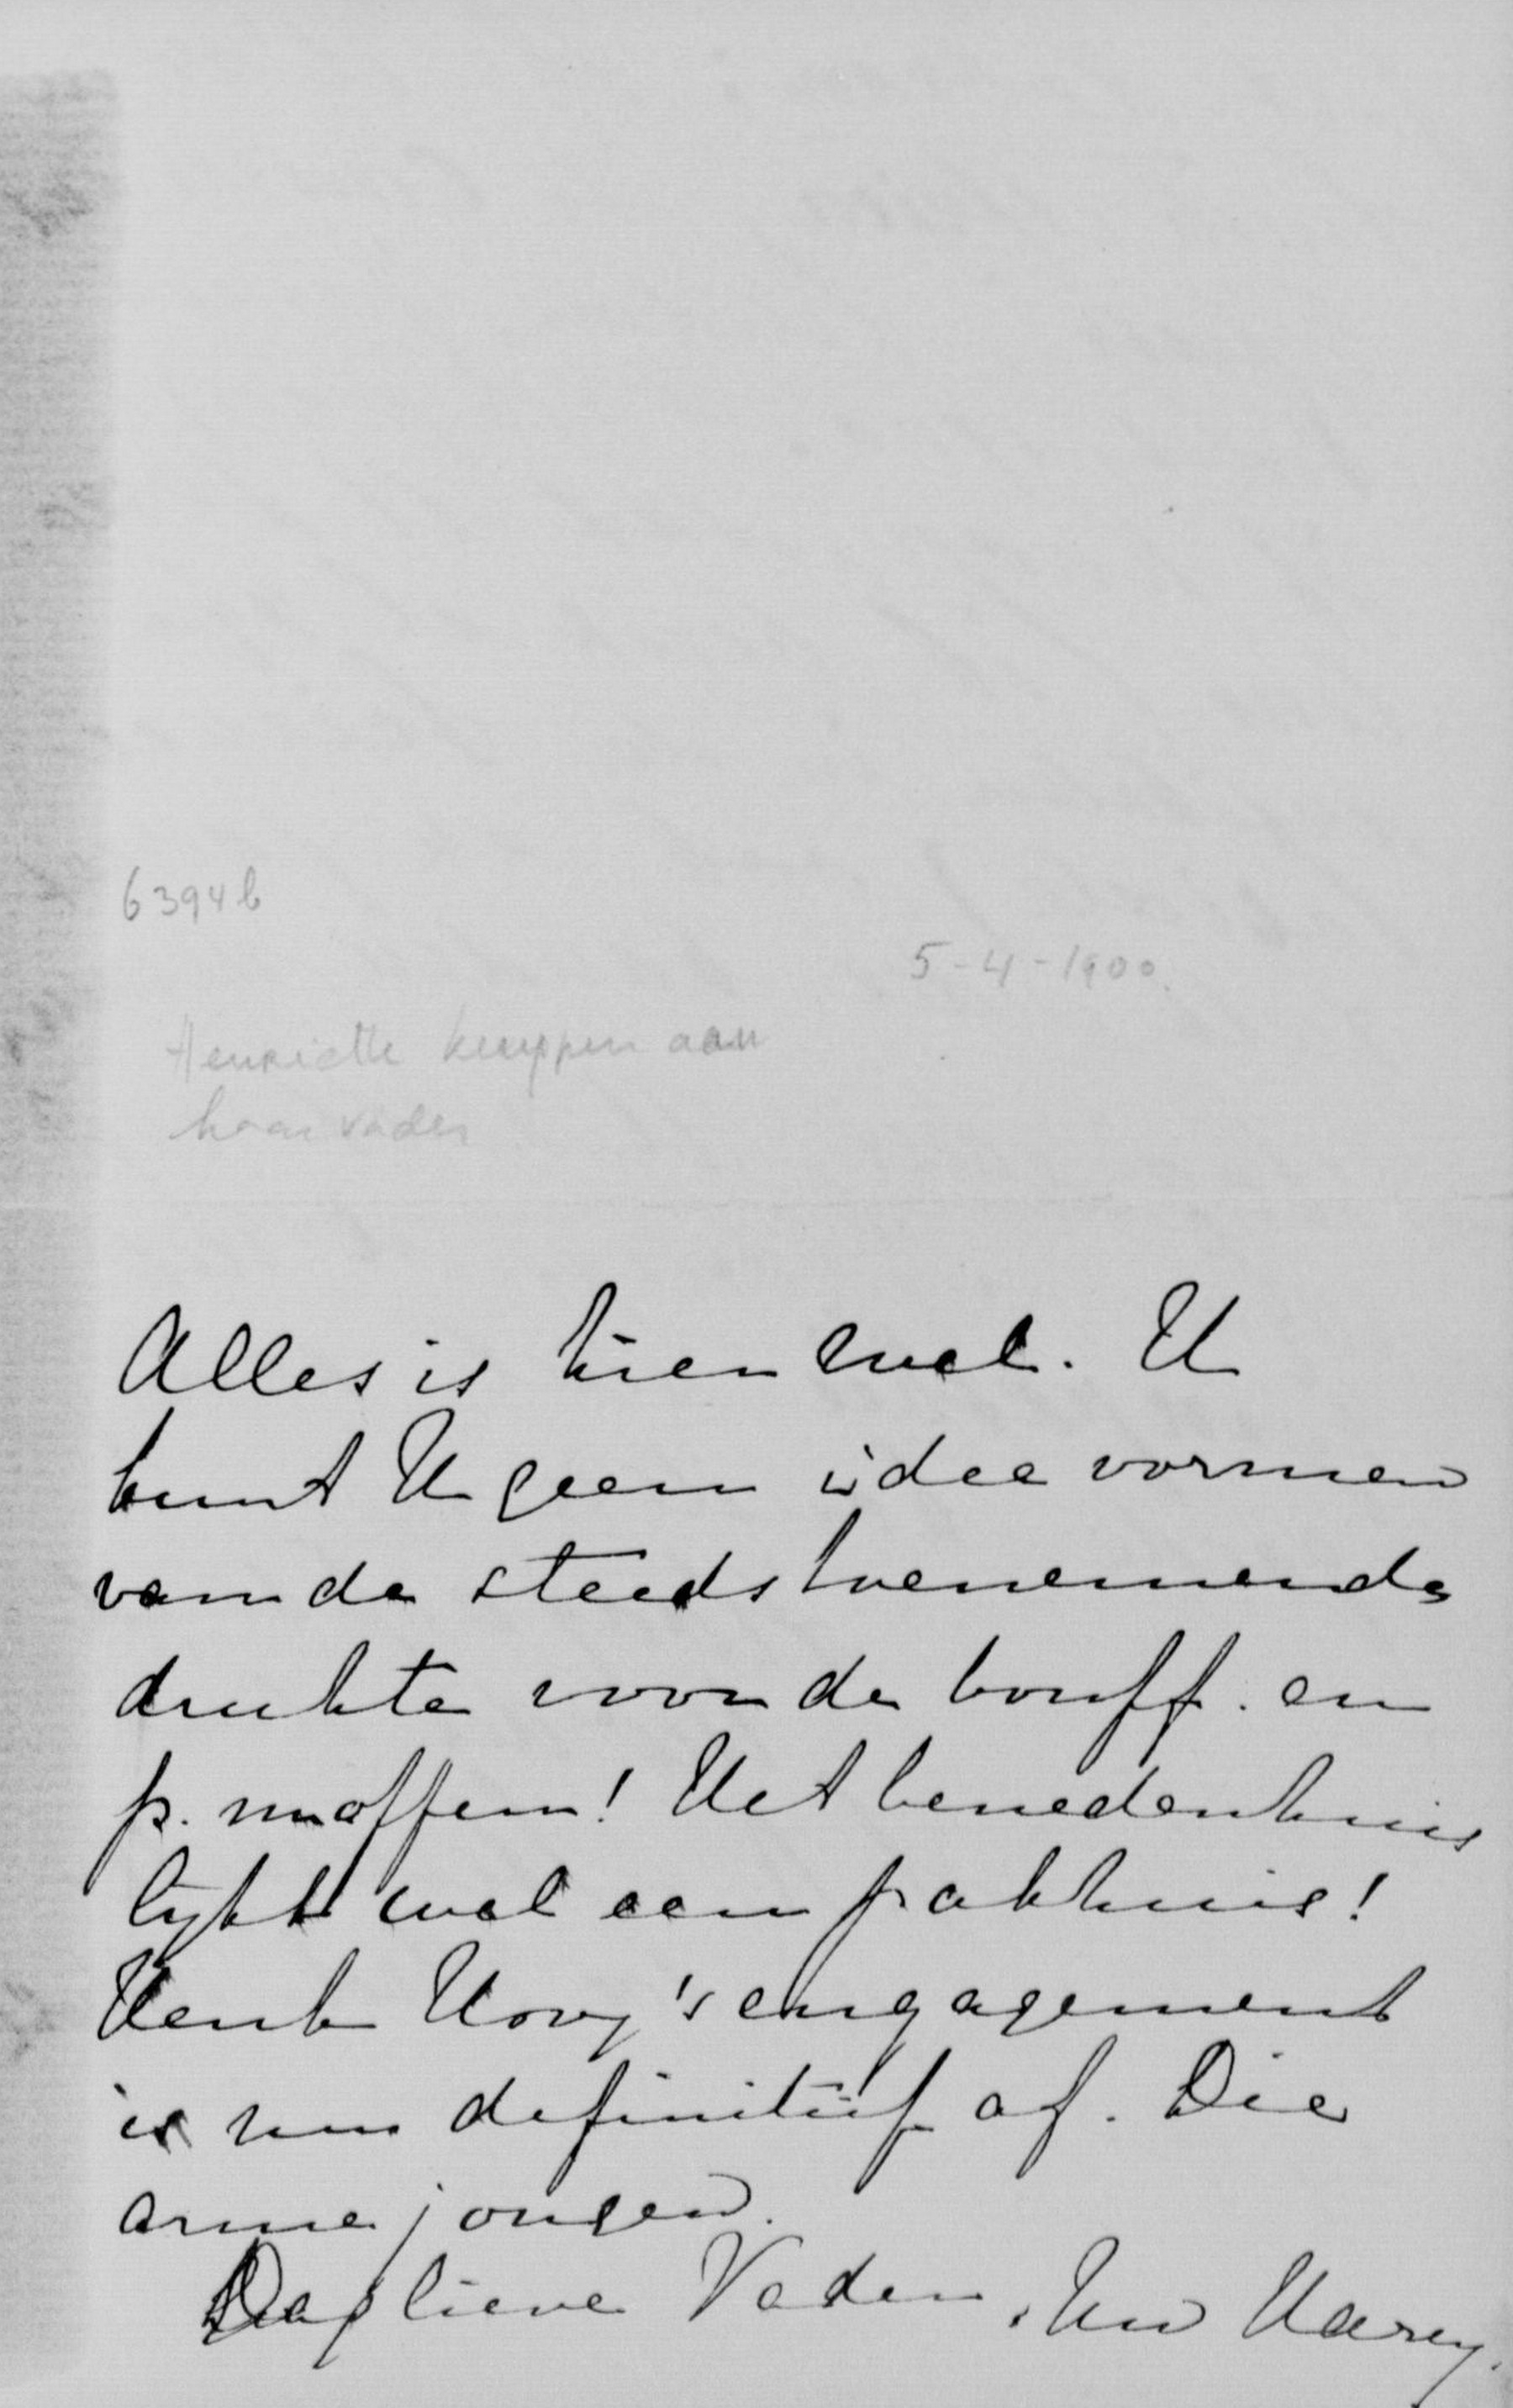 6394b
5-4-1900.
Henriette Kuyper aan
haar vader
Alles is hier wel. U
kunt U geen idee vormen
van de steeds toenemende
drukte voor de bouff. en
p. moffen! Het benedenhuis
lijkt wel een pakhuis!
Henk Hovy's engagement
is nu definitief af. Die
arme jongen.
Dag lieve Vader. Uw Harry.